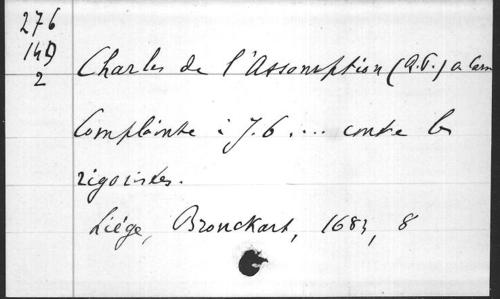 276
14D
2
Charles de l'Assomption (R.P.) a Carm
Complainte à J.C. ... contre les
rigoristes.
Liége, Bronckart, 1683, 8